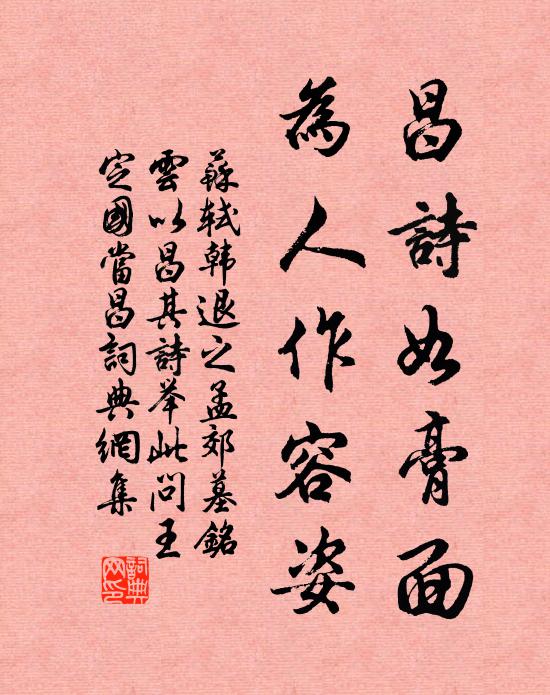 昌詩如膏面
為人作容姿
蘇軾韓退之孟郊墓銘
雲以昌其詩举此問王
定國當昌詞典網集
詞典
网印